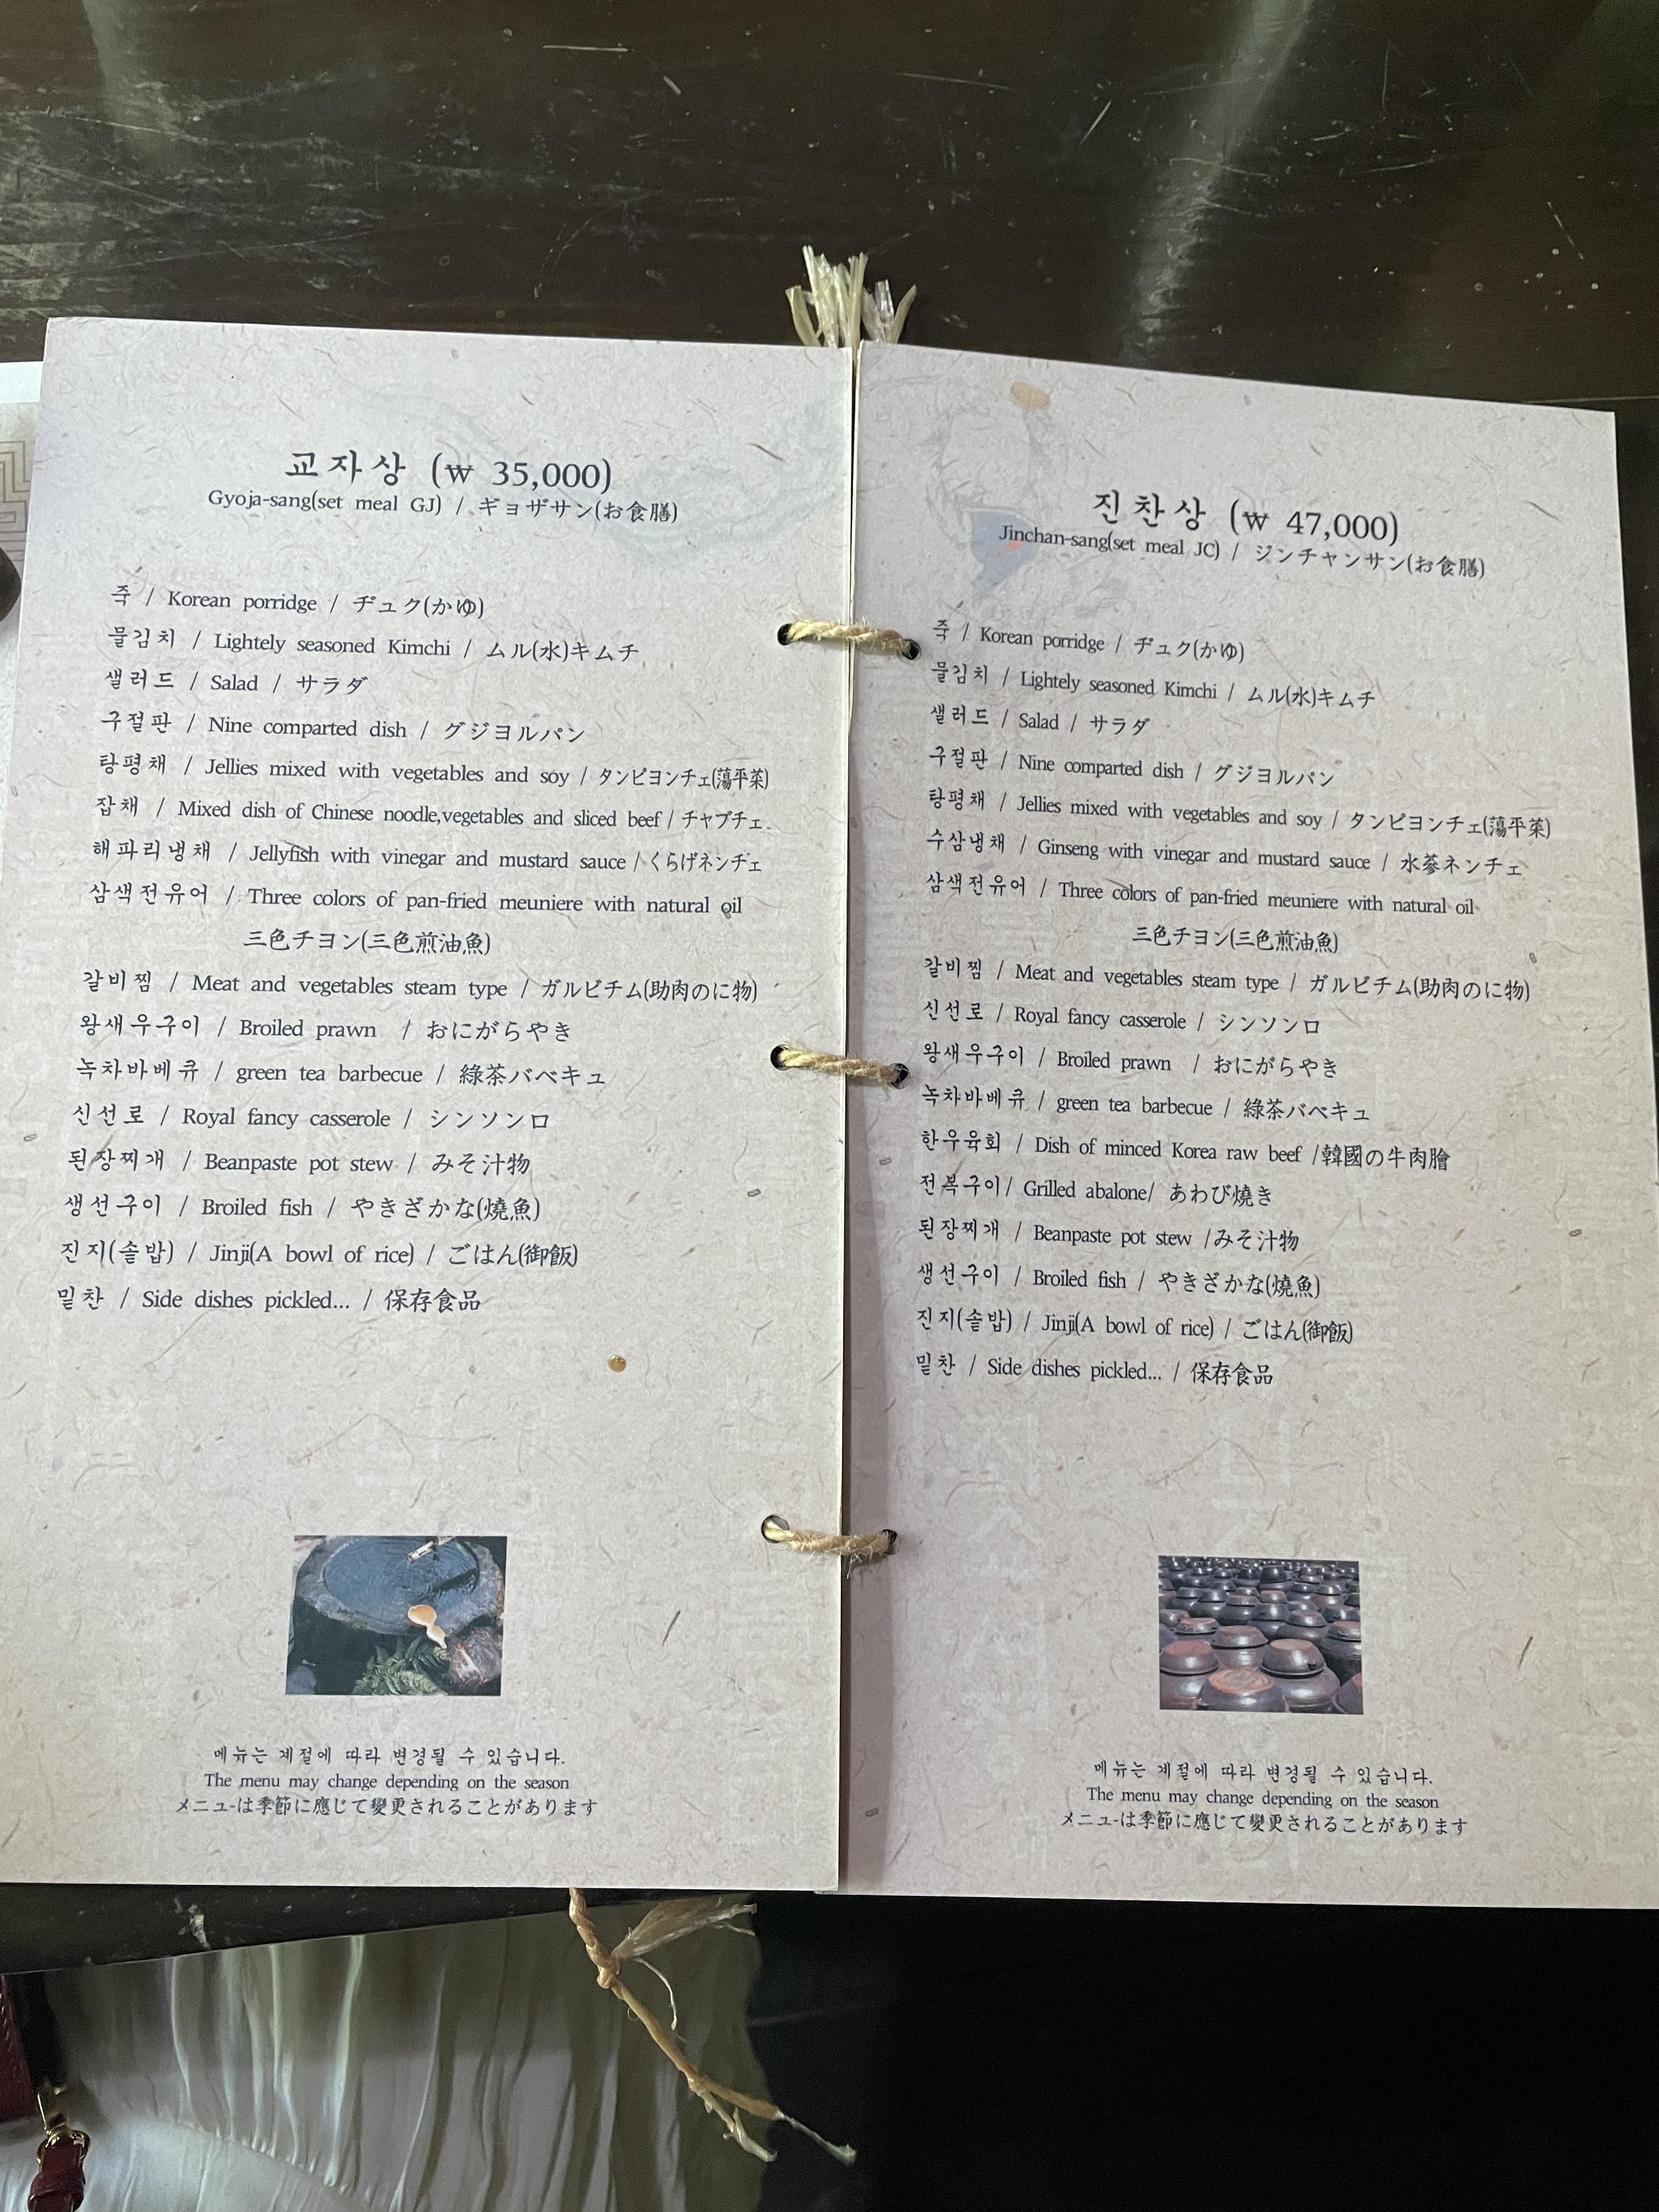 교자상 (₩ 35,000)
Gyoja-sang(set meal GJ) / ギョザサン(お食膳)
죽 / Korean porridge / ヂュク(かゆ)
물김치 / Lightely seasoned Kimchi / ムル(水)キムチ
샐러드 / Salad / サラダ
구절판 / Nine comparted dish / グジヨルパン
탕평채 / Jellies mixed with vegetables and soy / タンピヨンチェ(蕩平菜)
잡채 / Mixed dish of Chinese noodle,vegetables and sliced beef / チャプチェ
해파리냉채 / Jellyfish with vinegar and mustard sauce / くらげネンチェ
삼색전유어 / Three colors of pan-fried meuniere with natural oil
三色チヨン(三色煎油魚)
갈비찜 / Meat and vegetables steam type / ガルビチム(助肉のに物)
왕새우구이 / Broiled prawn / おにがらやき
녹차바베큐 / green tea barbecue / 綠茶バベキュ
신선로 / Royal fancy casserole / シンソンロ
된장찌개 / Beanpaste pot stew / みそ汁物
생선구이 / Broiled fish / やきざかな(燒魚)
진지(솥밥) / Jinji(A bowl of rice) / ごはん(御飯)
밑찬 / Side dishes pickled... / 保存食品
메뉴는 계절에 따라 변경될 수 있습니다.
The menu may change depending on the season
メニュ-は季節に應じて變更されることがあります
진찬상 (₩ 47,000)
Jinchan-sang(set meal JC) / ジンチャンサン(お食膳)
죽 / Korean porridge / ヂュク(かゆ)
물김치 / Lightely seasoned Kimchi / ムル(水)キムチ
샐러드 / Salad / サラダ
구절판 / Nine comparted dish / グジヨルパン
탕평채 / Jellies mixed with vegetables and soy / タンピヨンチェ(蕩平菜)
수삼냉채 / Ginseng with vinegar and mustard sauce / 水蔘ネンチェ
삼색전유어 / Three colors of pan-fried meuniere with natural oil
三色チヨン(三色煎油魚)
갈비찜 / Meat and vegetables steam type / ガルビチム(助肉のに物)
신선로 / Royal fancy casserole / シンソンロ
왕새우구이 / Broiled prawn / おにがらやき
녹차바베큐 / green tea barbecue / 綠茶バベキュ
한우육회 / Dish of minced Korea raw beef /韓國の牛肉膾
전복구이/ Grilled abalone/ あわび燒き
된장찌개 / Beanpaste pot stew /みそ汁物
생선구이 / Broiled fish / やきざかな(燒魚)
진지(솥밥) / Jinji(A bowl of rice) / ごはん(御飯)
밑찬 / Side dishes pickled... / 保存食品
메뉴는 계절에 따라 변경될 수 있습니다.
The menu may change depending on the season
メニュ-は季節に應じて變更されることがあります